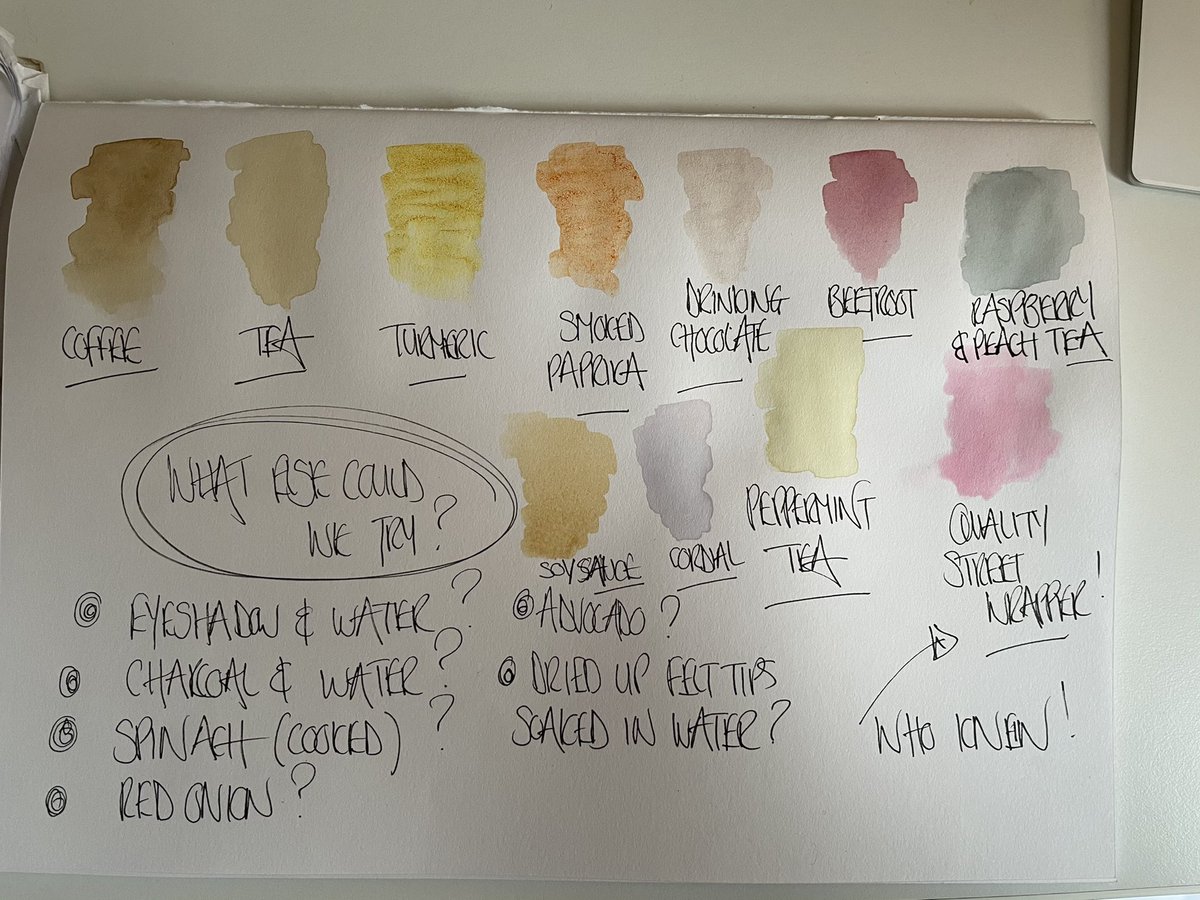 COFFEE
TEA
TURMERIC
SMOKED
PAPRIKA
DRINKING
CHOCOLATE
BEETROOT
RASPBERRY
& PEACH TEA
SOY SAUCE
CORDIAL
PEPPERMINT
TEA
QUALITY
STREET
WRAPPER!
WHO KNEW!
WHAT ELSE COULD
WE TRY?
EYESHADOW & WATER?
CHARCOAL & WATER?
SPINACH (COOKED)?
RED ONION?
ADVOCADO?
DRIED UP FELT TIPS
SOAKED IN WATER?